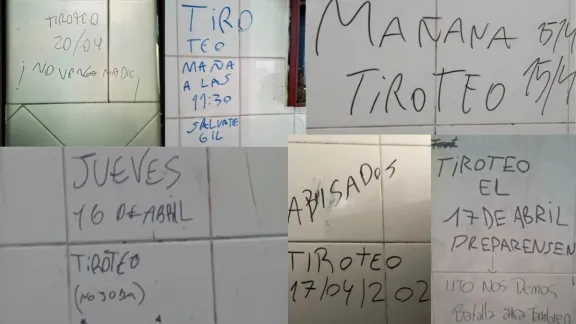 TIROTEO
20/04
¡NO VENGO NADIE!
TIRO
TEO
MAÑA
A LAS
11:30
SALVATE
GIL
MAÑANA 15/4
TIROTEO 15/4
JUEVES
16 DE ABRIL
TIROTEO
(NO JODA)
ABISADOS
TIROTEO
17/04/202
TIROTEO
EL
17 DE ABRIL
PREPARENSEN
NOS DEMOS
Batalla aka Tambien